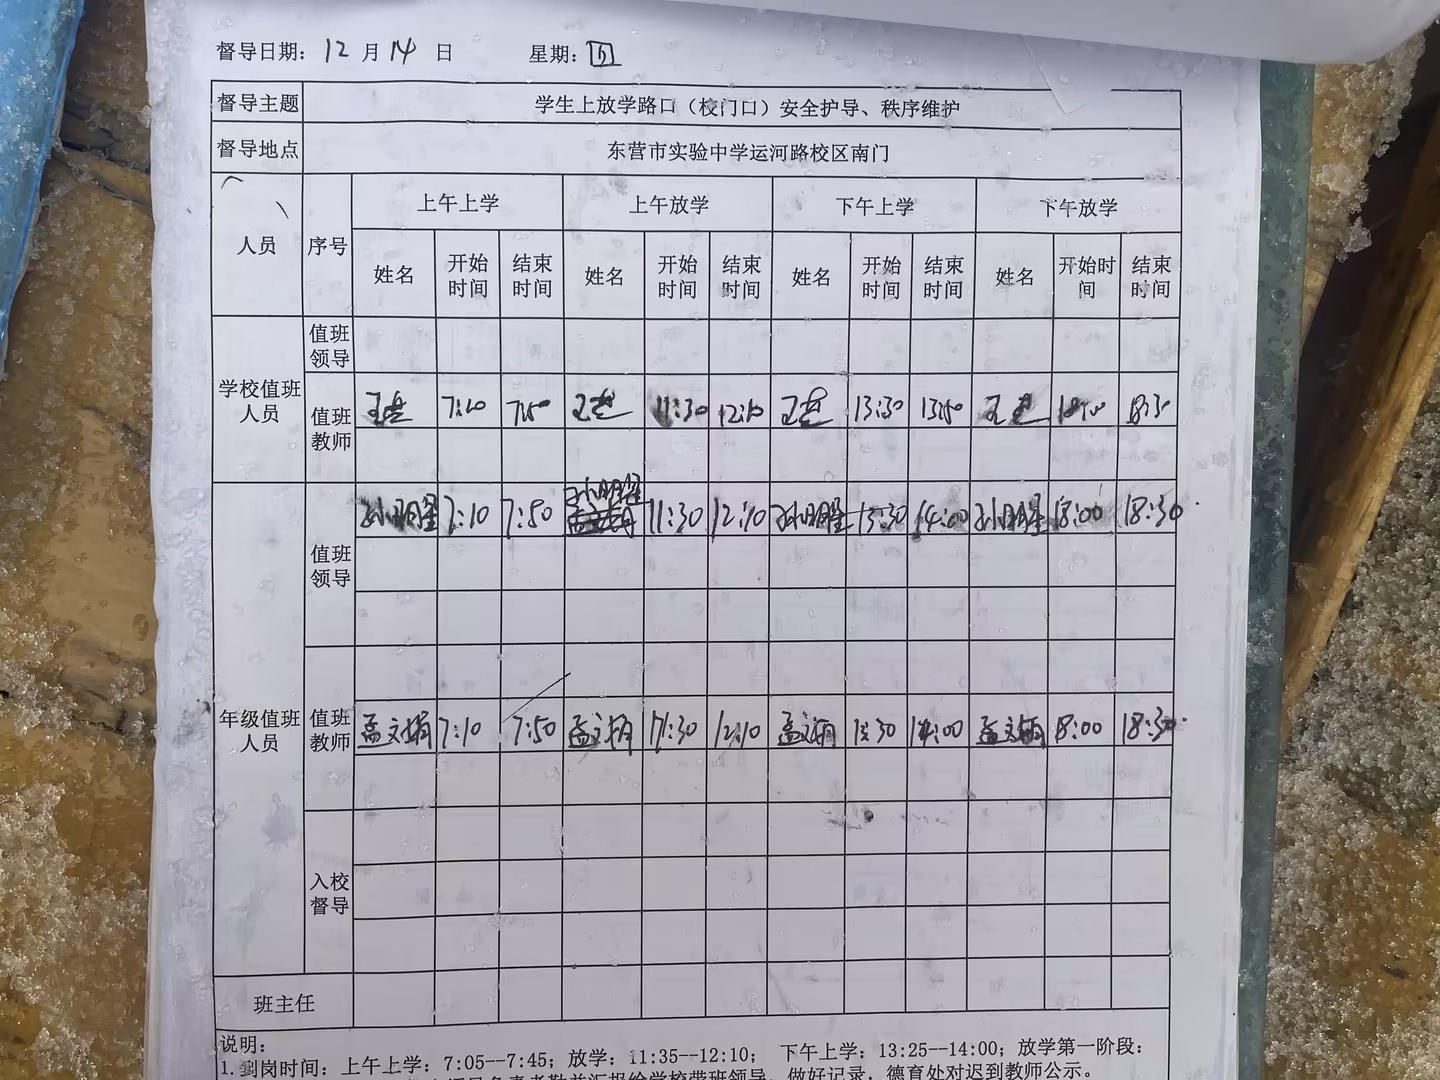 督导日期: 12 月 14 日 星期: 四
督导主题 学生上放学路口（校门口）安全护导、秩序维护
督导地点 东营市实验中学运河路校区南门
人员 序号 上午上学 上午放学 下午上学 下午放学
姓名 开始时间 结束时间 姓名 开始时间 结束时间 姓名 开始时间 结束时间 姓名 开始时间 结束时间
学校值班人员
值班领导
值班教师 7:10 7:50 11:30 12:10 13:30 13:50 18:00 18:30
年级值班人员
孙明星
值班领导 孙明星 7:10 7:50 11:30 12:10 孙明星 13:30 14:00 孙明星 18:00 18:30
值班教师 孟文娟 7:10 7:50 孟文娟 11:30 12:10 孟文娟 13:30 14:00 孟文娟 18:00 18:30
入校督导
班主任
说明:
1.到岗时间: 上午上学: 7:05--7:45; 放学: 11:35--12:10; 下午上学: 13:25--14:00; 放学第一阶段:
员负责考勤并汇报给学校带班领导，做好记录，德育处对迟到教师公示。